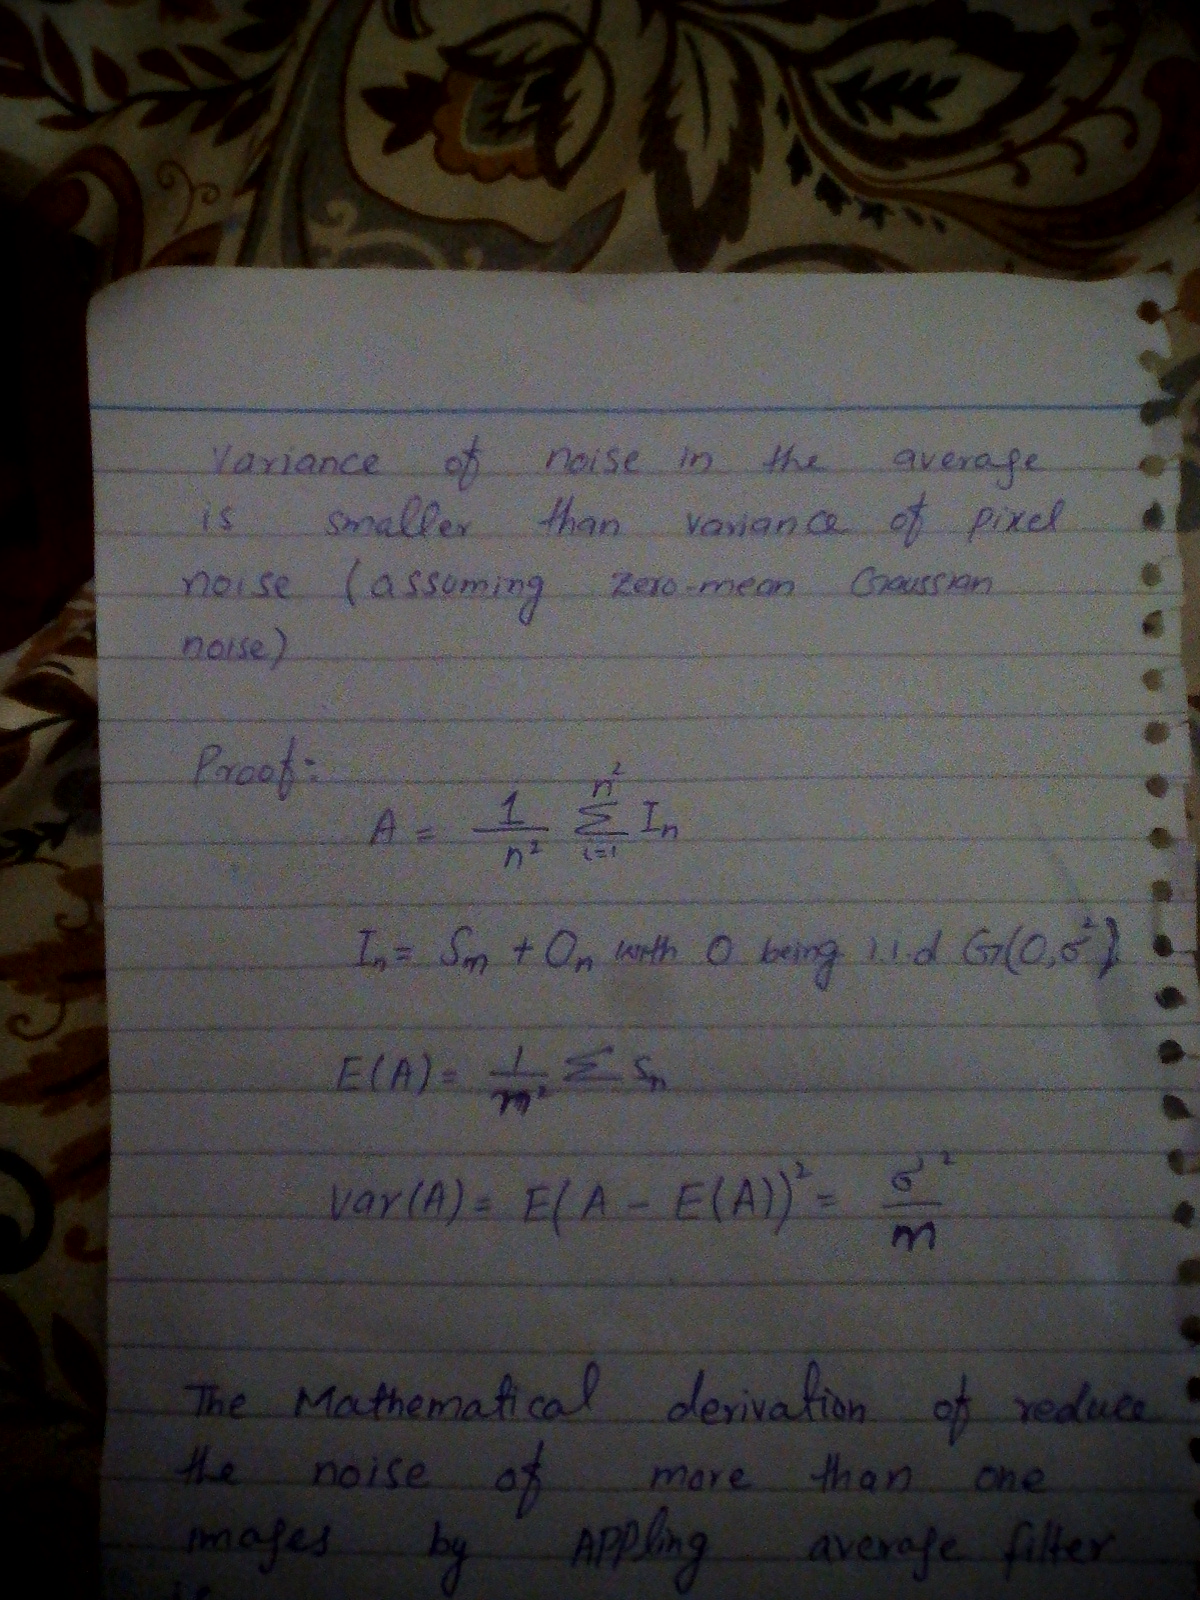 Variance of noise in the average
is smaller than variance of pixel
noise (assuming zero-mean Gaussian
noise)
Proof:
A = 1/n² Σ_{i=1}^{n²} I_n
I_n = S_m + O_n with O being i.i.d G(0,σ²)
E(A) = 1/m² Σ S_n
Var(A) = E(A - E(A))² = σ²/m
The Mathematical derivation of reduce
the noise of more than one
images by APPling average filter
is